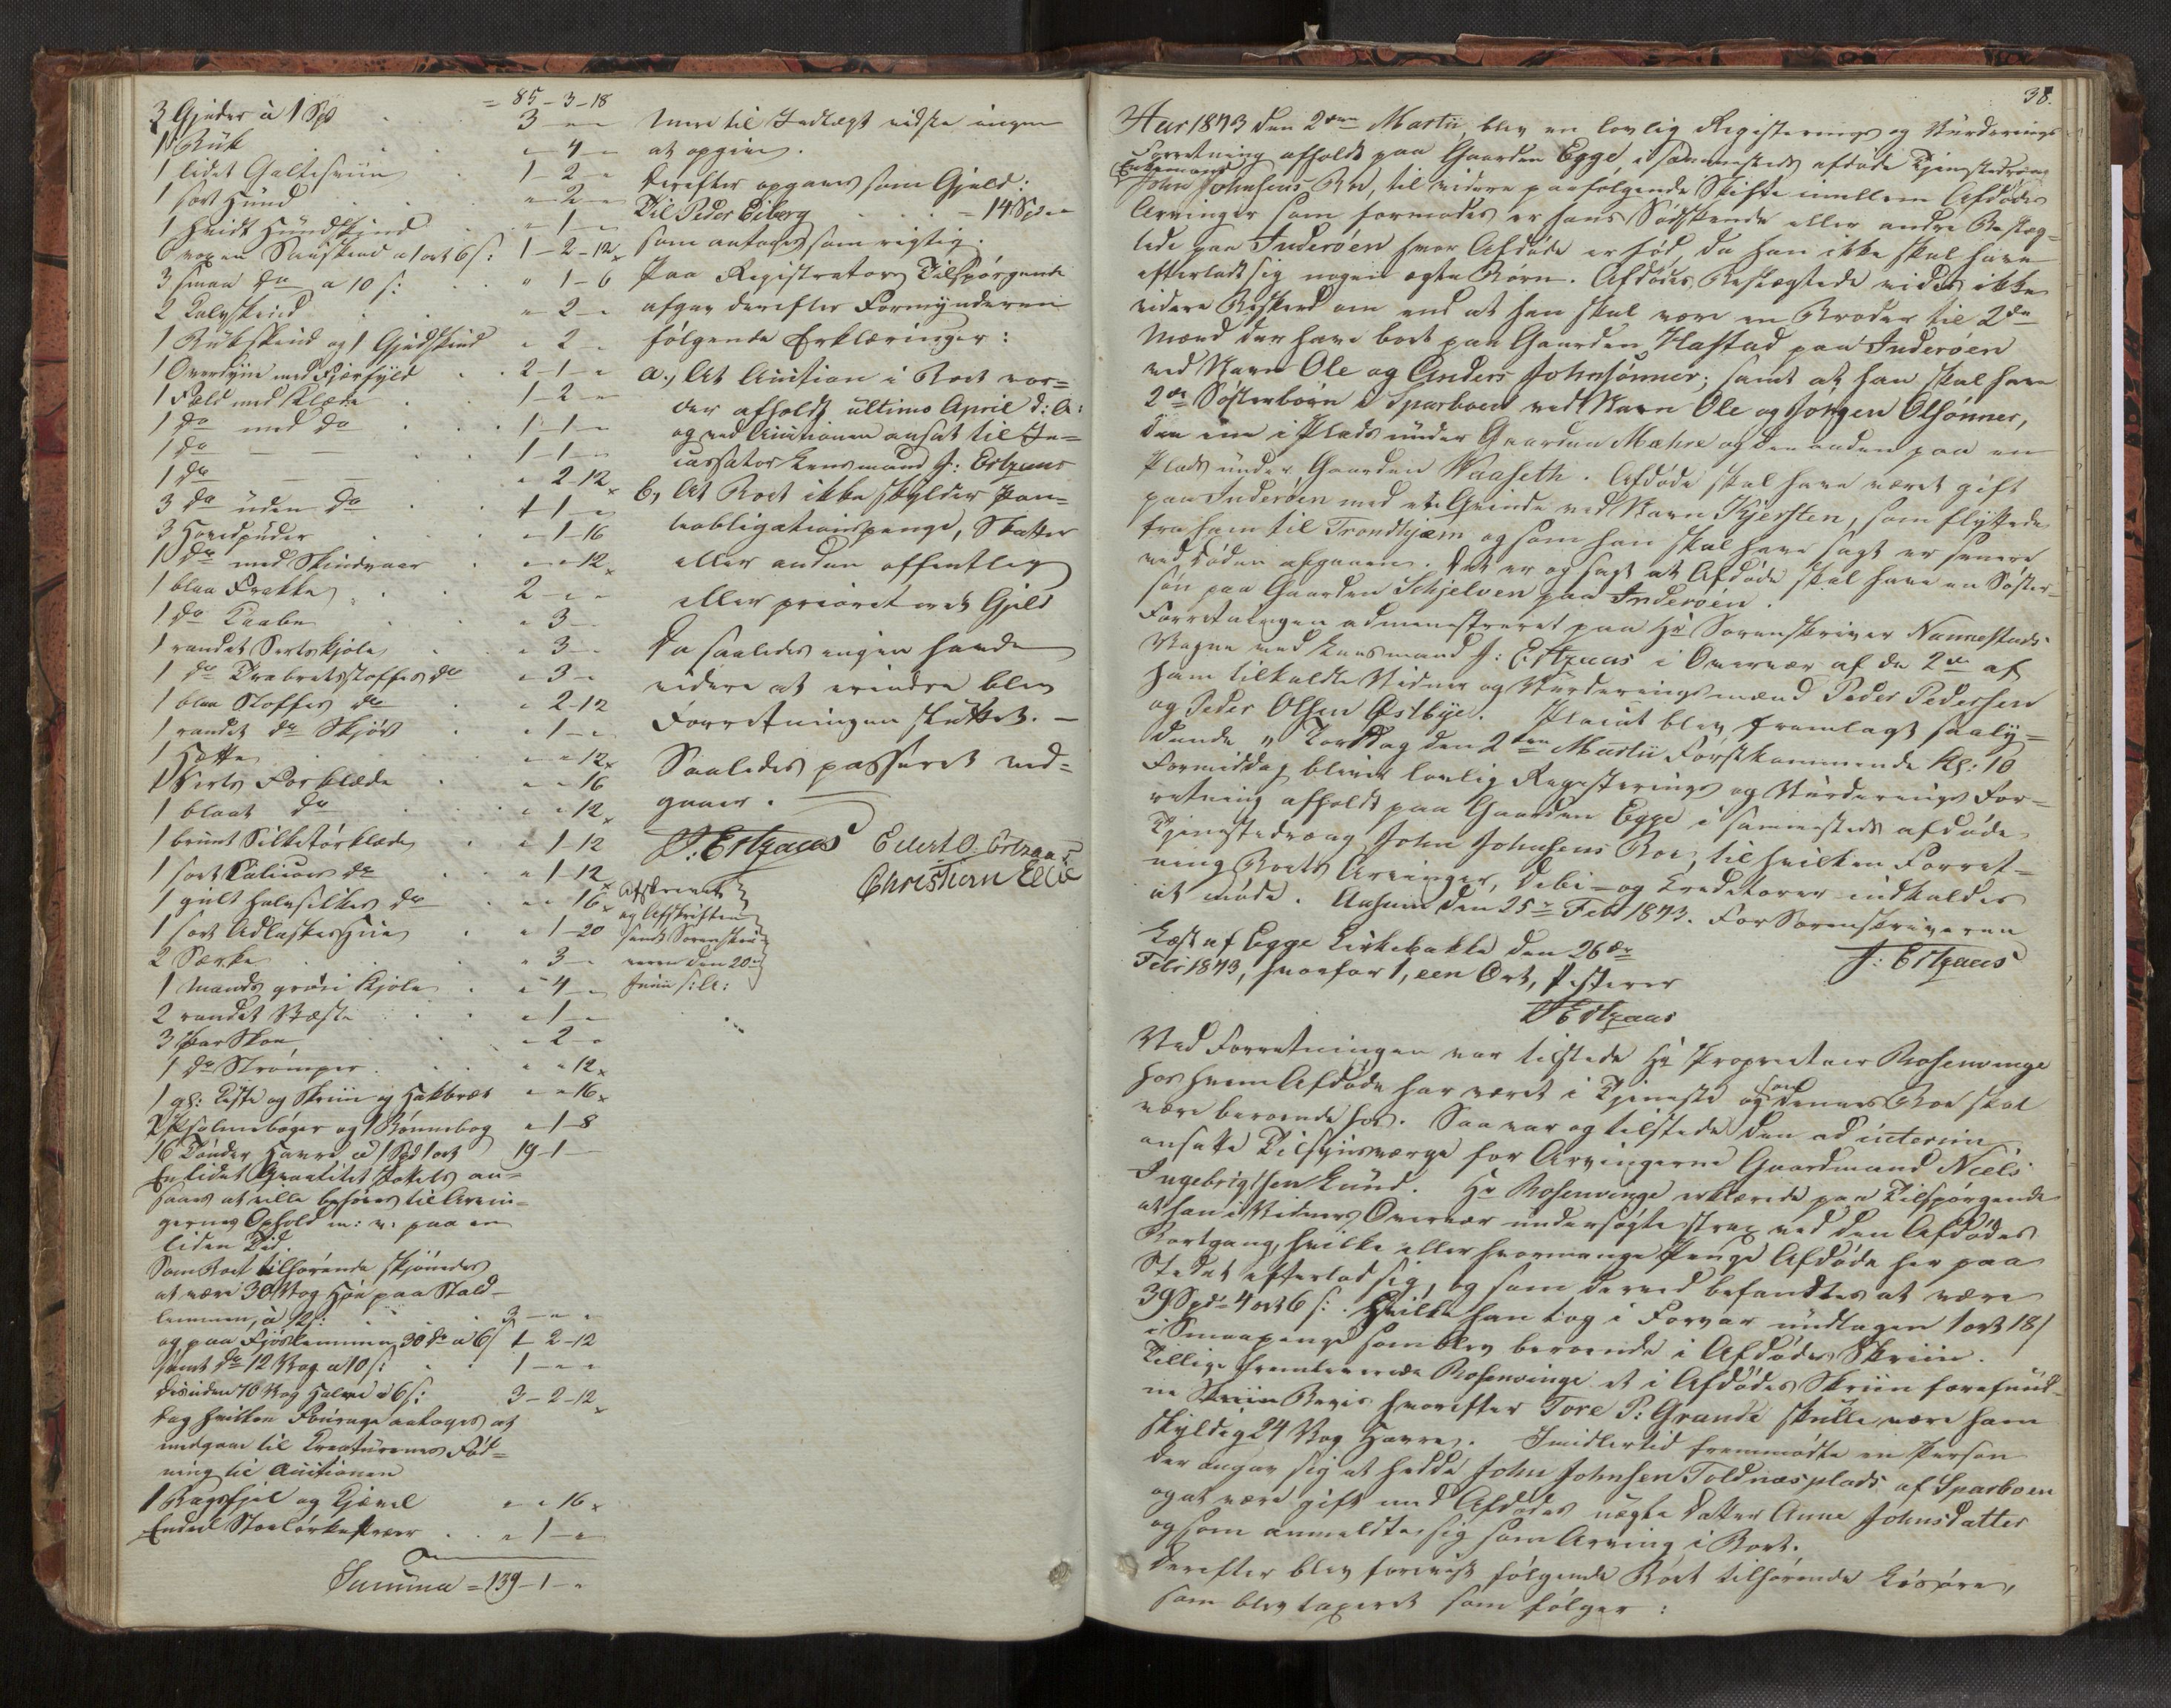 = 85-3-18
3 Gjeder à 1 Spd 3 - " - "
1 Buk " - 4 - "
1 lidet Galtesviin 1 - 2 - "
1 sort Hund " - 2 - "
1 hvidt Hundskind " - 1 - "
6 voxen Saueskind a 1 ort 6 s: 1 - 2 - 12
3 smaa do a 10 s: " 1 - 6
2 Kalvskind " - 2 - "
1 Bukskind og 1 Gjedskind " 2 - "
1 Overdyne med Fjærfyld 2 - 1 - "
1 Fæld med Klæde 1 - 2 - "
1 do med do 1 - 1 - "
1 do — — 1 - 1 - "
1 do — — " 2 - 12
3 do uden do 1 - 1 - "
3 Hovedpuder " - 1 - 16
1 do med Skindvaar " - " 12
1 blaa Frakke 2 - " - "
1 do Kaabe " 3 -
1 randet Sertskjole " 3 - "
1 do Trabretsstoffes do " 3 - "
1 blaa Stoffes do " 2 - 12
1 randet do Skjør " 1 - "
1 Hætte " - " 12
1 Serts Forklæde " - " 16
1 blaat do " - " 12
1 bruunt Silketørklæde " 1 - 12
1 sort Calicoes do " 1 - 12
1 guult halvsilkes do " - " 16
1 sort Adlaskes Hue " 1 - 20
2 Særke " 3 - "
1 Mands grøn Kjole " 4 - "
2 randet Væste " 1 - "
3 Par Skoe " 2 - "
1 do Strømper " - " 12
1 gl: Kiste og Skriin og Hakbræt " - " 16
2 Psalmebøger og 1 Bønnebog " 1 - 8
16 Tønder Havre à 1 Spd 1 ort 19 - 1 -
En lidet Qvantitet Potetes an-
saaes at ville behøves til Arvin-
gernes Ophold m: v: paa en
liden Tid.
Som Boet tilhørende skjønnedes
at være 30 Vog Høe paa Stald-
lemmen, à 12 s: 3 - " - "
og paa Fjøslemmen 30 do a 6 s 1 - 2 - 12
samt do 12 Vog a 10 s: 1 - " - "
desuden 70 Vog Halm à 6 s: 3 - 2 - 12
dog hvilken Fourage antages at
medgaae til Kreaturenes Fød-
ning til Auctionen
1 Bagsfjel og Kjævel " - " 16
Endeel " 1 - "
Summa = 139 - 1 - "
Mere til Indtægt vidste ingen
at opgive.
Derefter opgaves som Gjæld:
Til Peder Eiberg = 14 Spd "
som antoges som rigtig.
Paa Registrators Tilspørgende
afgav derefter Formynderen
følgende Erklæringer:
a., At Auction i Boet vor-
der afholdt ultimo April d: A:
og ved Auctionen ansat til In-
cassator Lensmand J: Ertzaas
b, At Boet ikke skylder Pan-
teobligationspenge, Skatter
eller anden offentlig
eller prioriteret Gjæld
Da saaledes ingen havde
videre at erindre blev
Forretningen sluttet. —
Saaledes passeret ved-
gaaer.
J: Ertzaas Edert O. Ertzaas
Christian Elve
Afskrevet
og Afskriften
sendt Sorenskri-
veren den 20de
Juni s: A:
38.
Aar 1843 den 2den Martii blev en lovlig Registerings og Vurderings
Forretning afholdt paa Gaarden Egge i sammesteds afdøde Tjenestedræng
Enkemand
John Johnsens Boe, til videre paafølgende Skifte imellem Afdødes
Arvinger som formodes er hans Sødskende eller andre Beslæg-
tede paa Inderøen hvor Afdøde er fød, da han ikke skal have
efterladt sig nogen ægte Børn. Afdødes Beslægtede vides ikke
videre Beskeed om end at han skal være en Broder til 2de
Mænd der have boet paa Gaarden Hastad paa Inderøen
ved Navn Ole og Anders Johnsønner; samt at han skal have
2de Søsterbørn i Sparboen ved Navn Ole og Jørgen Olsønner,
den ene i Plads under Gaarden Mæhre og den anden paa en
Plads under Gaarden Vaaseth. Afdøde skal have været gift
paa Inderøen med et Qvinde ved Navn Kjersten, som flyttede
fra ham til Trondhjæm og som han skal have sagt er senere
ved Døden afgaaen. Det er og sagt at Afdøde skal have en Søster-
søn paa Gaarden Schjelven paa Inderøen.
Forretningen administreret paa Hr Sorenskriver Nannestads
Vegne ved Lensmand J: Ertzaas i Overvær af de 2de af
ham tilkaldte Vidner og Vurderingsmænd Peder Pedersen
og Peder Olsen Østbye. Placat blev fremlagt saaly-
dende " Torsdag den 2den Martii Førstkommende Kl: 10
Formiddag bliver lovlig Registerings og Vurderings For-
retning afholdt paa Gaarden Egge i sammesteds afdøde
Tjenestedræng John Johnsens Boe, til hvilken Forret-
ning Boets Arvinger, Debi- og Creditorer indkaldes
at møde. Aasum den 25de Febr 1843. For Sorenskriveren
J: Ertzaas
Læst af Egge Kirkebakke den 26de
Febr 1843, hvorfor 1, een Ort, qvitterer
J Ertzaas
Ved Forretningen var tilstede Hr Proprietær Rosenvinge
hos hvem Afdøde har været i Tjeneste og som dennes Boe skal
være beroende hos. Saa var og tilstede den ad interim
ansatte Tilsynsværge for Arvingerne Gaardmand Niels
Ingebrigtsen Lund. Hr Rosenvinge erklærede paa Tilspørgende
at han i Vidners Overvær undersøgte strax ved den Afdødes
Bortgang, hvilke eller hvormange Penge Afdøde her paa
Stedet efterlod sig, og som derved befandtes at være
39 Spd 4 ort 6 s: Hvilke han tog i Forvar undtagen 1 ort 18 s
i Smaapenge som blev beroende i Afdødes Skriin.
Tillige fremleverede Rosenvinge et i Afdødes Skriin forefund-
ne Beviis hvorefter Tore P: Grande skulle være ham
skyldig 24 Vog Havre. Imidlertid fremmødte en Person
der angav sig at hedde John Johnsen Toldnæsplads af Sparboen
og at være gift med Afdødes uægte Datter Anne Johnsdatter
og som anmeldte sig som Arving i Boet.
Derefter blev foreviist følgende Boet tilhørende Løsøre,
som blev taxeret som følger: